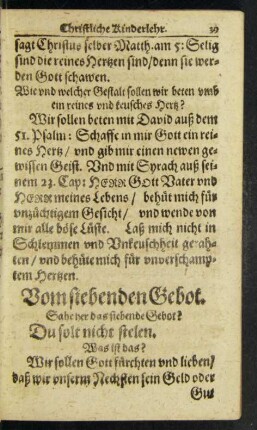 Christliche Kinderlehr. 39
sagt Christus selber Matth. am 5: Selig
sind die reines Hertzen sind/denn sie wer-
den Gott schawen.
Wie vnd welcher Gestalt sollen wir beten vmb
ein reines vnd keusches Hertz?
Wir sollen beten mit David auß dem
51. Psalm: Schaffe in mir Gott ein rei-
nes Hertz/ vnd gib mir einen newen ge-
wissen Geist. Vnd mit Syrach auß sei-
nem 23. Cap: HERR GOtt Vater vnd
HERR meines Lebens/ behüt mich für
vnzüchtigem Gesicht/ vnd wende von
mir alle böse Lüste. Laß mich nicht in
Schlemmen vnd Vnkeuschheit gerah-
ten/ vnd behüte mich für vnverschamp-
tem Hertzen.
Vom siebenden Gebot.
Sage her das siebende Gebot?
Du solt nicht stelen.
Was ist das?
Wir sollen Gott fürchten vnd lieben/
daß wir vnserm Nechsten sein Geld oder
Gut